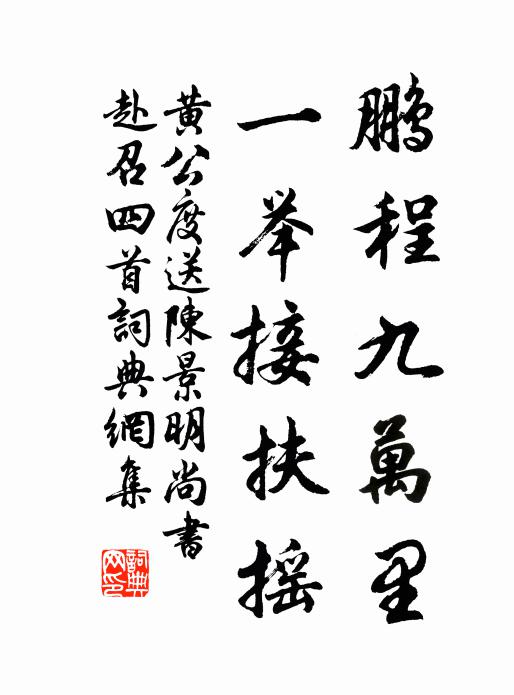 鹏程九萬里
一举接扶摇
黄公度送陳景明尚書
赴召四首詞典網集
詞典
网印